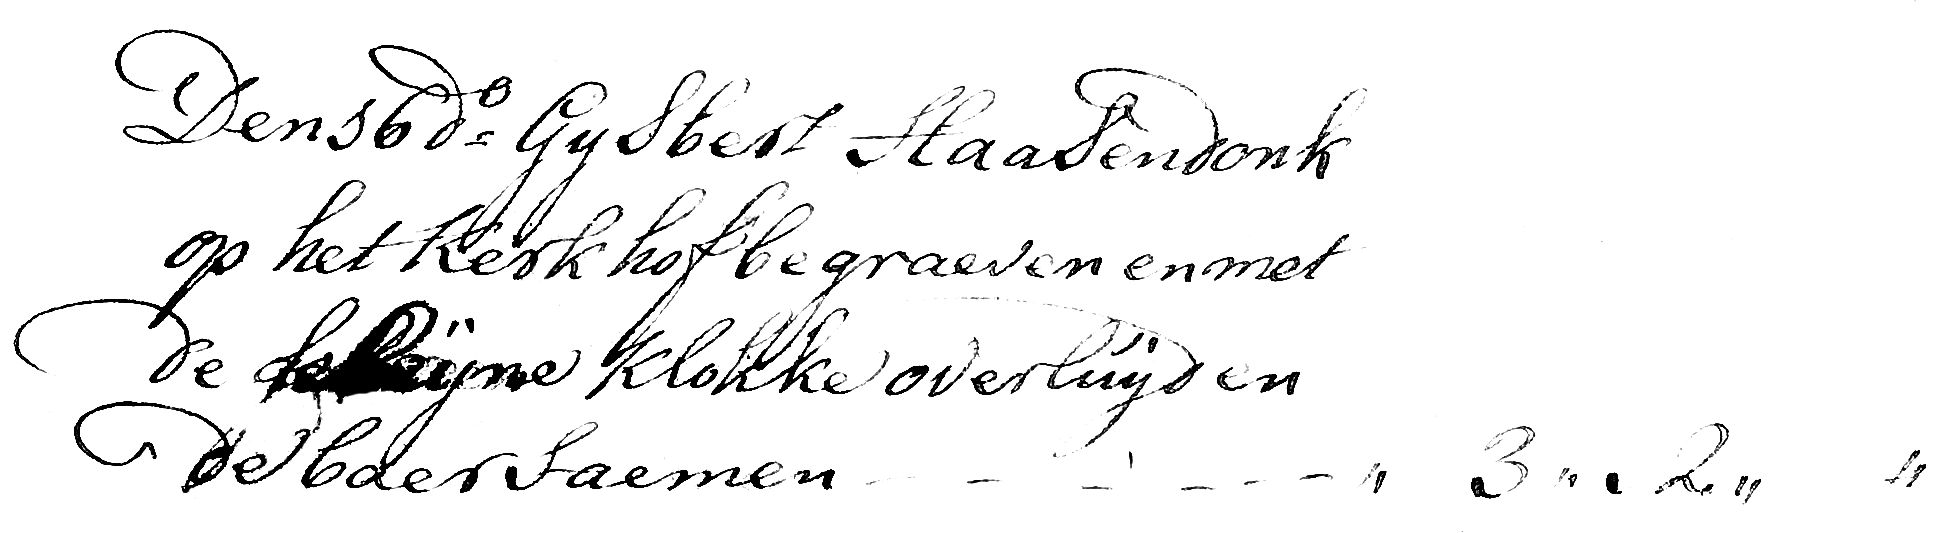 Den 36 do Gysbert Haasendonk
op het kerkhof begraeven en met
de klijne klokke overluijden
de baer saemen - - - - - " 3 " 2 " "